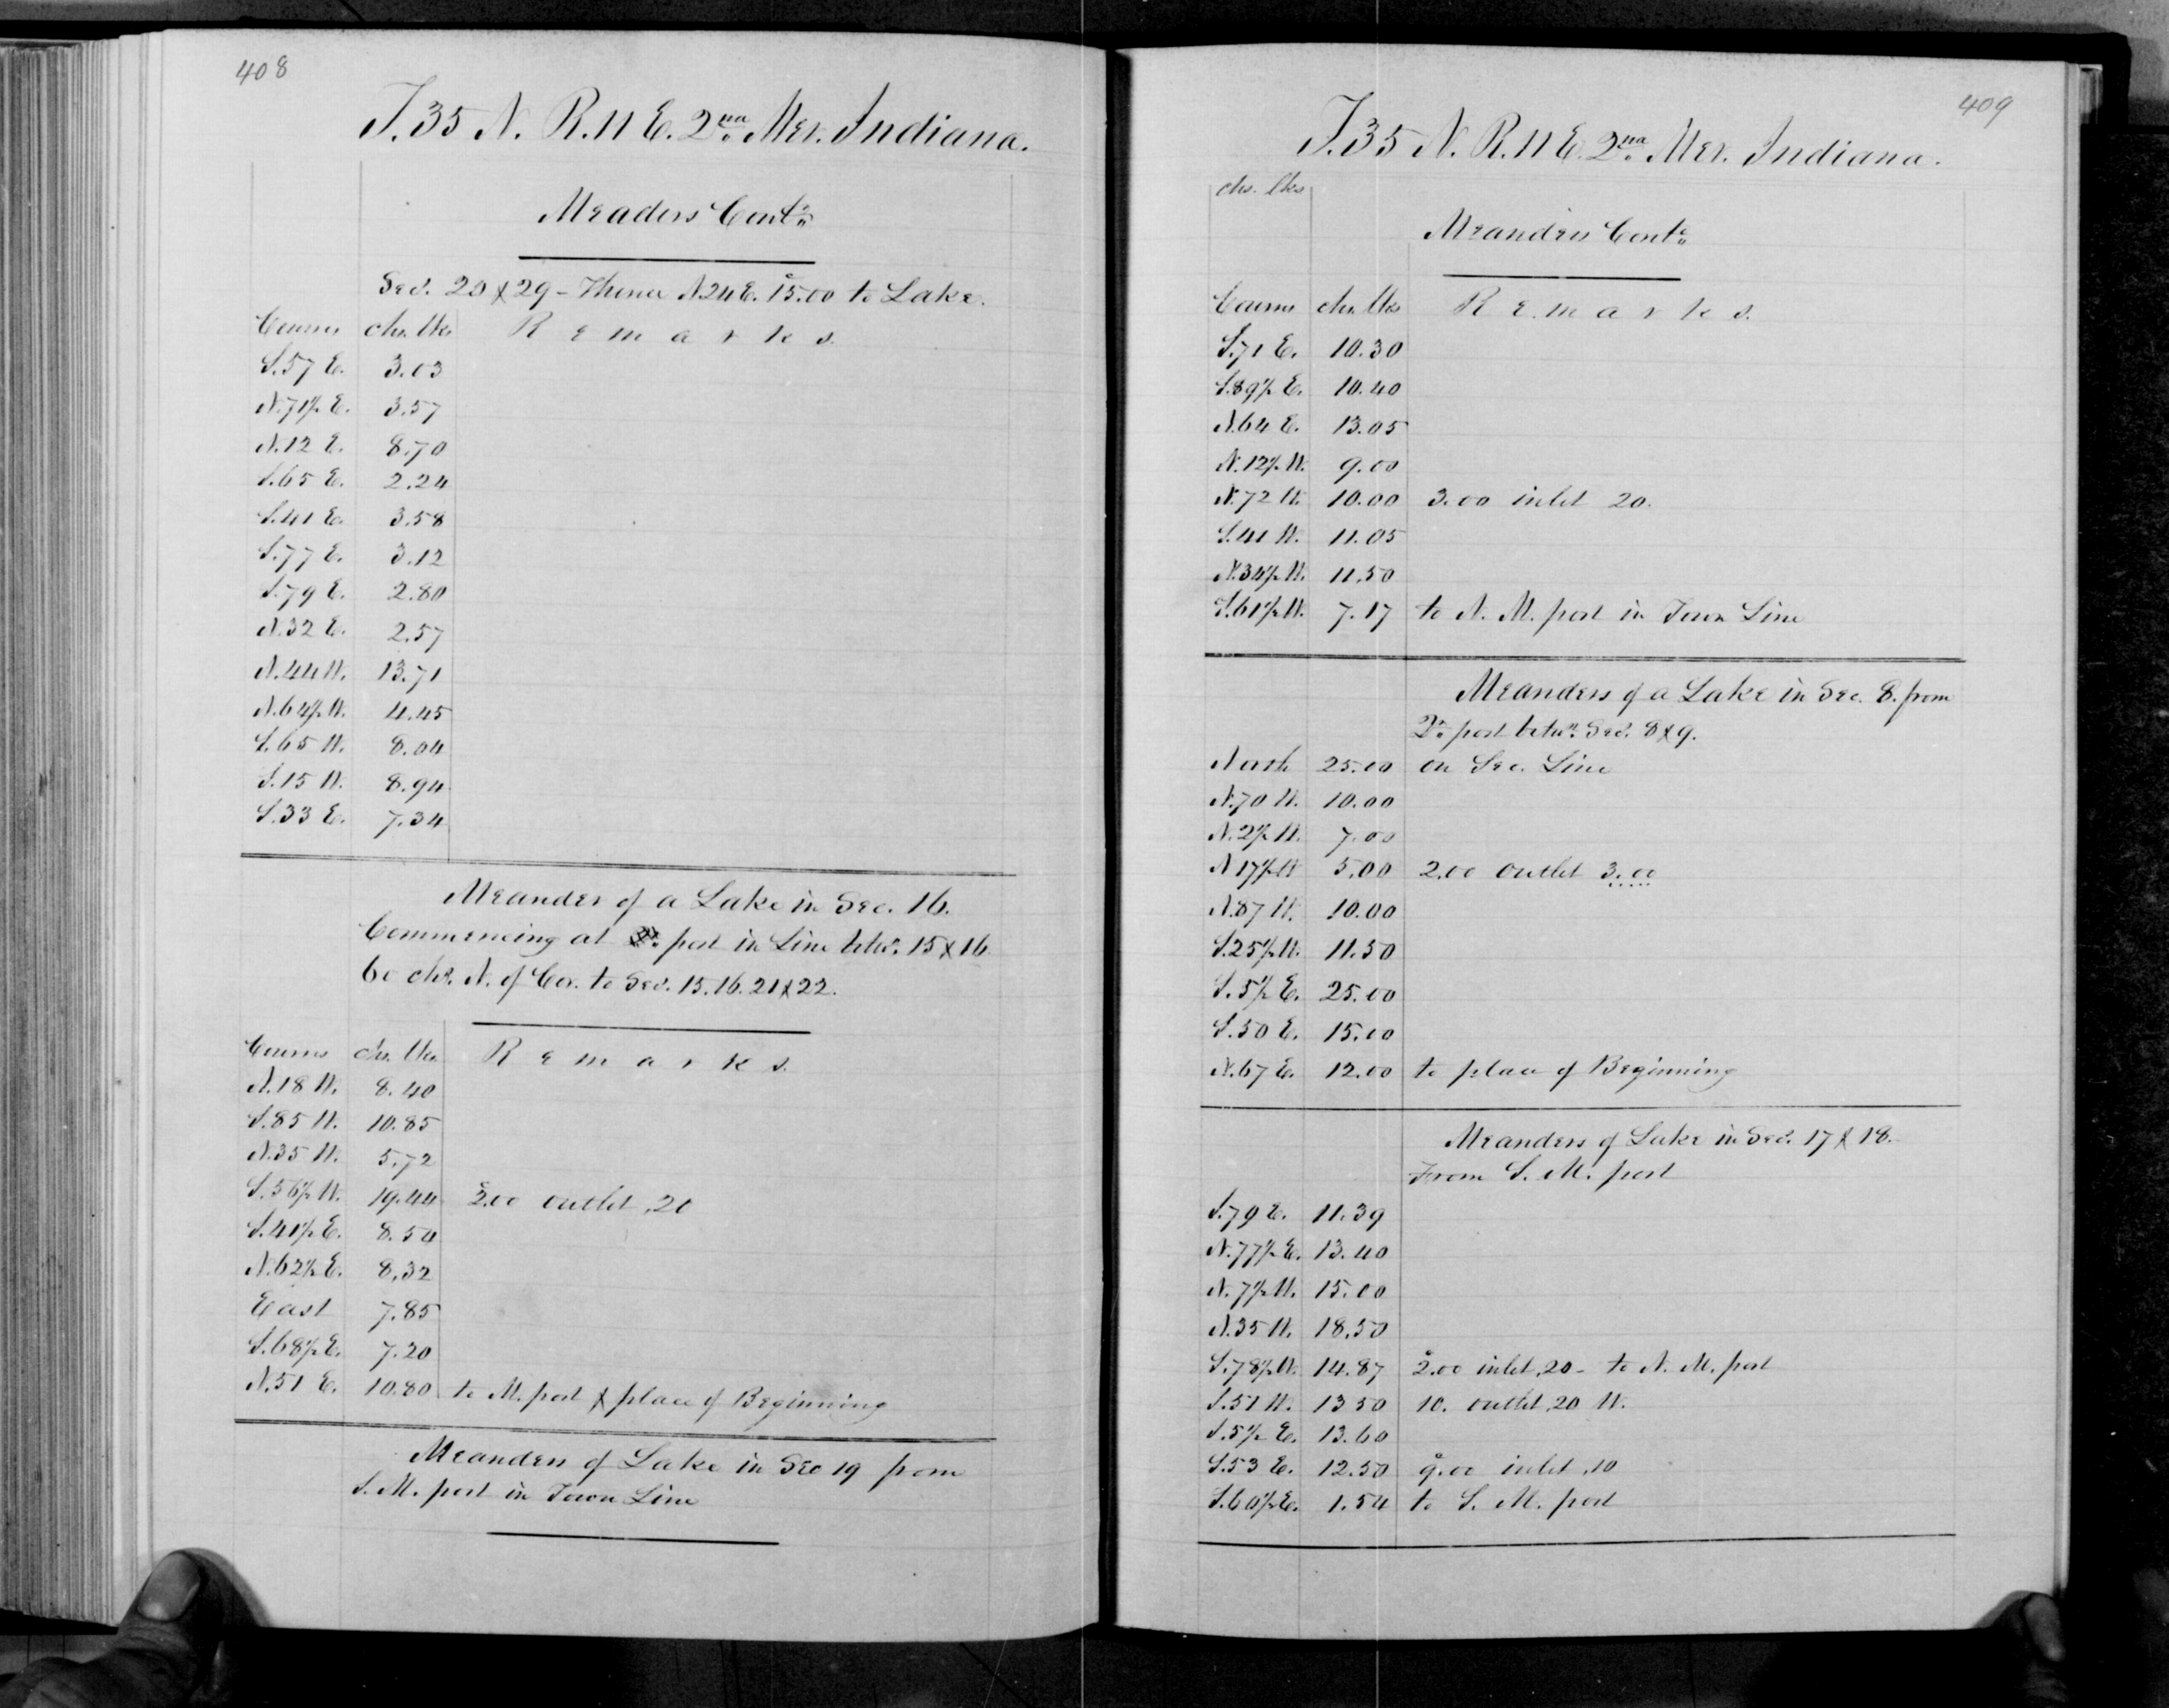 408
T. 35 N. R. 11 E. 2nd Mer. Indiana.
Meaders Contd
Secs. 20 & 29 - Thence N 24 E. 15.00 to Lake.
Course chs. lks Remarks.
S. 57 E. 3.03
N. 71½ E. 3.57
N. 12 E. 8.70
S. 65 E. 2.24
S. 41 E. 3.58
S. 77 E. 3.12
S. 79 E. 2.80
N. 32 E. 2.57
N. 44 W. 13.71
N. 64½ W. 4.45
S. 65 W. 8.04
S. 15 W. 8.94
S. 33 E. 7.34
Meander of a Lake in Sec. 16.
Commencing at post in Line betwn. 15 & 16
60 chs. N. of Cor. to Secs. 15. 16. 21 & 22.
Course chs. lks Remarks.
N. 18 W. 8.40
S. 85 W. 10.85
N. 35 W. 5.72
S. 56½ W. 19.44 2.00 outlet ,20
S. 41½ E. 8.54
N. 62½ E. 8,32
East 7.85
S. 68½ E. 7.20
N. 51 E. 10.80 to M. post & place of Beginning
Meanders of Lake in Sec 19 from
S. M. post in Town Line
409
T. 35 N. R. 11 E. 2nd Mer. Indiana.
chs. lks
Meanders Contd
Course chs. lks Remarks.
S. 71 E. 10.30
S. 89½ E. 10.40
N. 64 E. 13.05
N. 12½ W. 9.00
N. 72 W. 10.00 3.00 inlet 20.
S. 41 W. 11.05
N. 34½ W. 11.50
S. 61½ W. 7.17 to N. M. post in Town Line
Meanders of a Lake in Sec. 8. from
Qr. post betwn. Secs. 8 & 9.
North 25.00 on Sec. Line
N. 70 W. 10.00
N. 2½ W. 7.00
N 17½ W 5.00 2.00 outlet 3.00
N. 87 W. 10.00
S. 25½ W. 11.50
S. 5½ E. 25.00
S. 50 E. 15.00
N. 67 E. 12.00 to place of Beginning
Meanders of Lake in Secs. 17 & 18.
From S. M. post
S. 79 E. 11.39
N. 77½ E. 13.40
N. 7½ W. 15.00
N. 35 W. 18.50
S. 78½ W. 14.87 2.00 inlet ,20 - to N. M. post
S. 51 W. 13 50 10. outlet ,20 W.
S. 5½ E. 13.60
S. 53 E. 12.50 9.00 inlet ,10
S. 60½ E. 1.54 to S. M. post